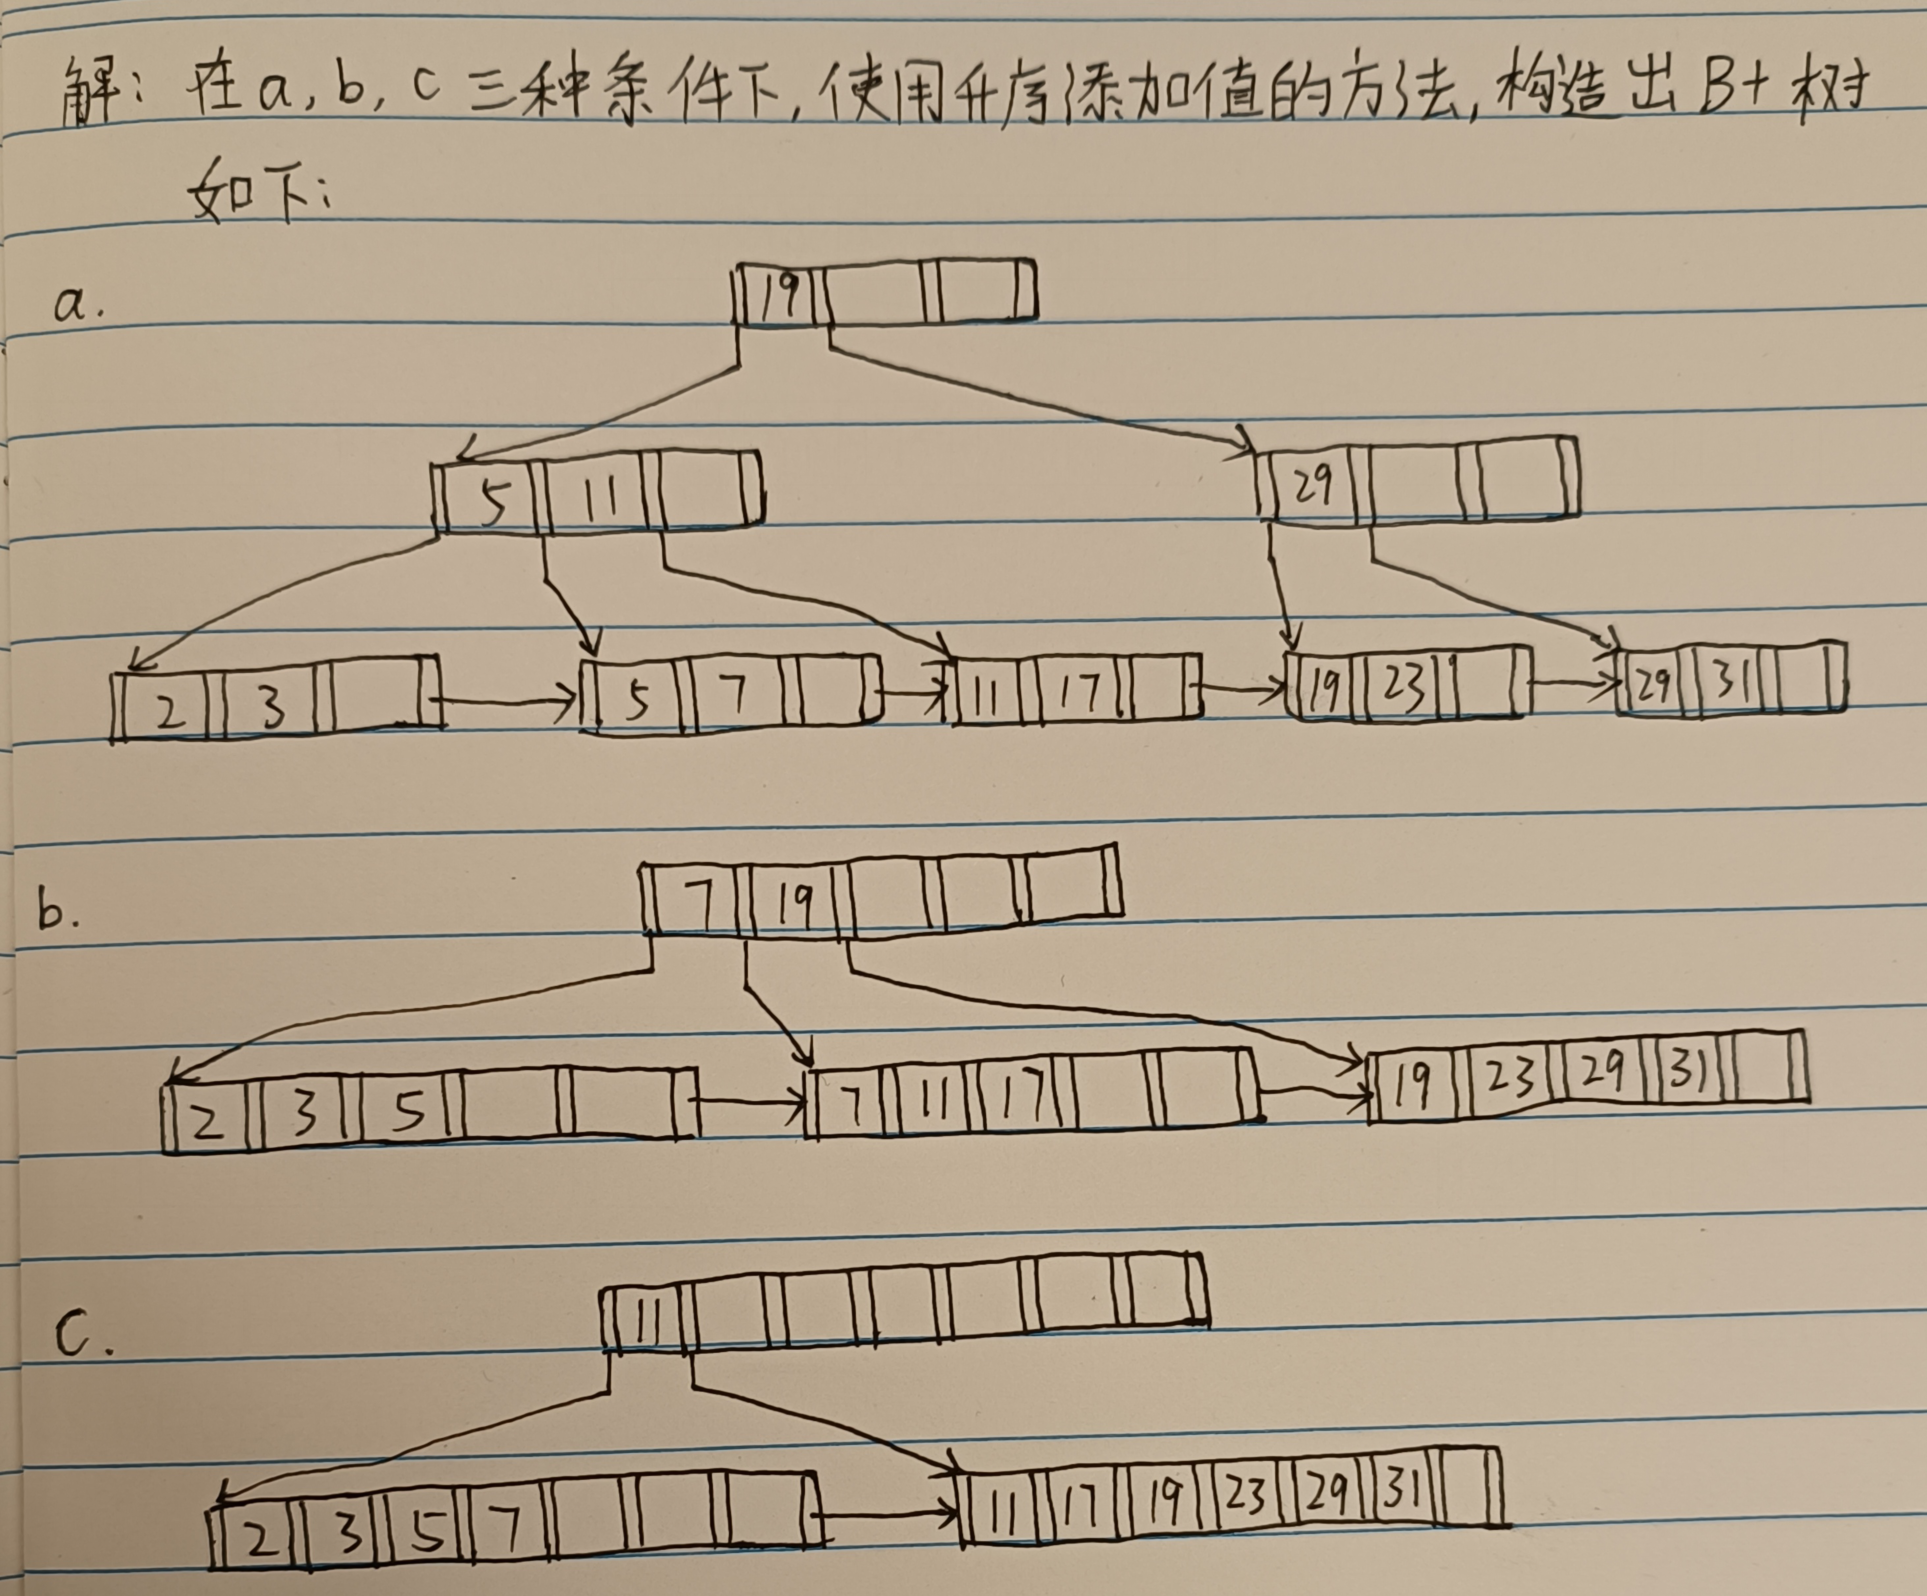 解：在a,b,c三种条件下,使用升序添加值的方法,构造出B+树
如下：
a.
19
5 11
29
2 3
5 7
11 17
19 23
29 31
b.
7 19
2 3 5
7 11 17
19 23 29 31
c.
11
2 3 5 7
11 17 19 23 29 31